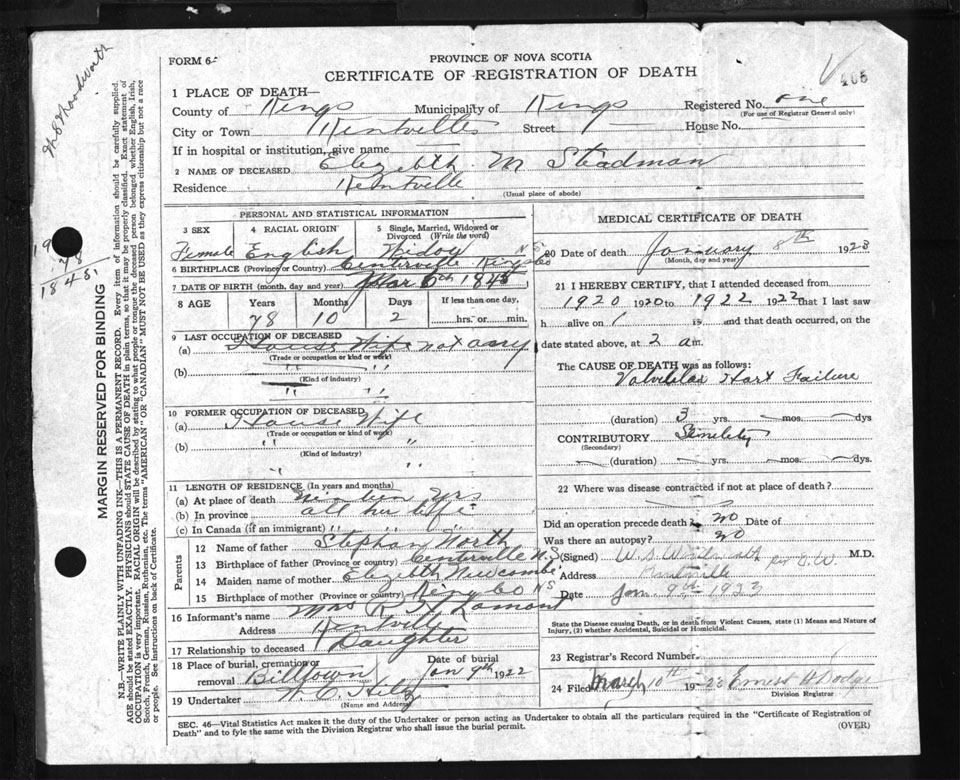 FORM 6
PROVINCE OF NOVA SCOTIA
CERTIFICATE OF REGISTRATION OF DEATH
405
1 PLACE OF DEATH—
County of Kings Municipality of Kings Registered No. one
(For use of Registrar General only)
City or Town Kentville Street House No.
If in hospital or institution, give name
2 NAME OF DECEASED M Steadman
Residence Kentville
(Usual place of abode)
PERSONAL AND STATISTICAL INFORMATION
3 SEX 4 RACIAL ORIGIN 5 Single, Married, Widowed or Divorced (Write the word)
Female English Widow
6 BIRTHPLACE (Province or Country) Centerville Kings Co N.S.
7 DATE OF BIRTH (month, day and year) Mar 6th
8 AGE Years Months Days If less than one day,
78 10 2 hrs. or min.
9 LAST OCCUPATION OF DECEASED
(a) House Wife not any
(Trade or occupation or kind of work)
(b) " "
(Kind of industry)
" "
10 FORMER OCCUPATION OF DECEASED
(a) House Wife
(Trade or occupation or kind of work)
(b) " "
(Kind of industry)
" "
11 LENGTH OF RESIDENCE (In years and months)
(a) At place of death yrs
(b) In province all her life
(c) In Canada (if an immigrant) " " "
Parents
12 Name of father Stephan North
13 Birthplace of father (Province or country) Centerville N.S
14 Maiden name of mother Newcombe
15 Birthplace of mother (Province or country) NS
16 Informant's name Mrs R Lamont
Address Kentville
17 Relationship to deceased Daughter
18 Place of burial, cremation or removal Billtown Date of burial Jan 9th 1922
19 Undertaker W. C.
(Name and Address)
MEDICAL CERTIFICATE OF DEATH
20 Date of death January 8th 1923
(Month, day and year)
21 I HEREBY CERTIFY, that I attended deceased from
1920 1920 to 1922 1922 that I last saw
h alive on is and that death occurred, on the
date stated above, at 2 am.
The CAUSE OF DEATH was as follows:
Hart Failure
(duration) 3 yrs. mos. dys
CONTRIBUTORY
(Secondary)
(duration) yrs. mos. dys.
22 Where was disease contracted if not at place of death?
Did an operation precede death? no Date of
Was there an autopsy? no
(Signed) W. S. M.D.
Address Kentville
Date Jan 9th 1923
State the Disease causing Death, or in death from Violent Causes, state (1) Means and Nature of
Injury, (2) whether Accidental, Suicidal or Homicidal.
23 Registrar's Record Number
24 Filed March 10th 1923 Ernest H Dodge
Division Registrar
SEC. 46—Vital Statistics Act makes it the duty of the Undertaker or person acting as Undertaker to obtain all the particulars required in the "Certificate of Registration of
Death" and to fyle the same with the Division Registrar who shall issue the burial permit.
(OVER)
MARGIN RESERVED FOR BINDING
N.B.—WRITE PLAINLY WITH UNFADING INK—THIS IS A PERMANENT RECORD. Every item of information should be carefully supplied.
AGE should be stated EXACTLY. PHYSICIANS should STATE CAUSE OF DEATH in plain terms, so that it may be properly classified. Exact statement of
OCCUPATION is very important. RACIAL ORIGIN will be described by stating to what people or tongue the deceased person belonged whether English, Irish,
Scotch, French, German, Russian, Ruthenian, etc. The terms "AMERICAN" OR "CANADIAN" MUST NOT BE USED as they express citizenship but not a race
or people. See instructions on back of Certificate.
Woodworth
78